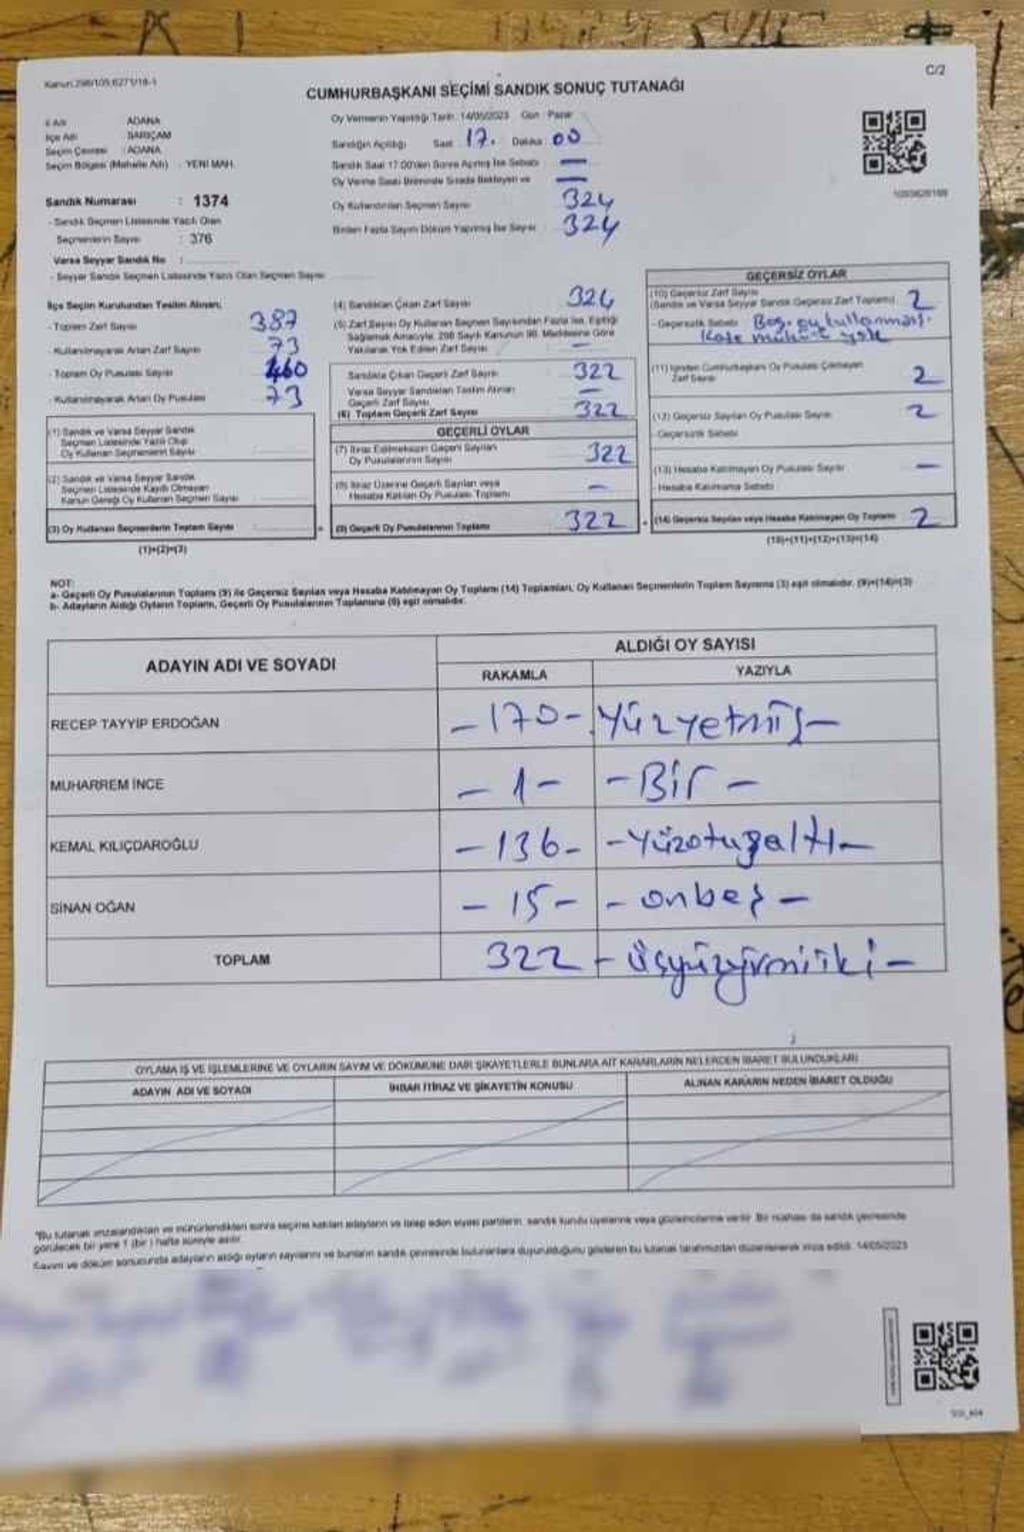 Kanun:298/105,6271/18-1
C/2
CUMHURBAŞKANI SEÇİMİ SANDIK SONUÇ TUTANAĞI
İl Adı ADANA
İlçe Adı SARIÇAM
Seçim Çevresi : ADANA
Seçim Bölgesi (Mahalle Adı) : YENİ MAH.
Sandık Numarası : 1374
- Sandık Seçmen Listesinde Yazılı Olan
Seçmenlerin Sayısı : 376
Varsa Seyyar Sandık No :
- Seyyar Sandık Seçmen Listesinde Yazılı Olan Seçmen Sayısı
Oy Vermenin Yapıldığı Tarih: 14/05/2023 Gün : Pazar
Sandığın Açıldığı Saat 17. Dakika 00
Sandık Saat 17:00'den Sonra Açılmış İse Sebebi —
Oy Verme Saati Bitiminde Sırada Bekleyen ve —
Oy Kullandırılan Seçmen Sayısı 324
Birden Fazla Sayım Döküm Yapılmış İse Sayısı 324
İlçe Seçim Kurulundan Teslim Alınan;
- Toplam Zarf Sayısı 387
- Kullanılmayarak Artan Zarf Sayısı 73
- Toplam Oy Pusulası Sayısı 460
- Kullanılmayarak Artan Oy Pusulası 73
(1) Sandık ve Varsa Seyyar Sandık
Seçmen Listesinde Yazılı Olup
Oy Kullanan Seçmenlerin Sayısı
(2) Sandık ve Varsa Seyyar Sandık
Seçmen Listesinde Kayıtlı Olmayan
Kanun Gereği Oy Kullanan Seçmen Sayısı
(3) Oy Kullanan Seçmenlerin Toplam Sayısı
(1)+(2)=(3)
(4) Sandıktan Çıkan Zarf Sayısı 324
(5) Zarf Sayısı Oy Kullanan Seçmen Sayısından Fazla İse, Eşitliği
Sağlamak Amacıyla, 298 Sayılı Kanunun 98. Maddesine Göre
Yakılarak Yok Edilen Zarf Sayısı —
Sandıkta Çıkan Geçerli Zarf Sayısı 322
Varsa Seyyar Sandıktan Teslim Alınan
Geçerli Zarf Sayısı —
(6) Toplam Geçerli Zarf Sayısı 322
GEÇERLİ OYLAR
(7) İtiraz Edilmeksizin Geçerli Sayılan
Oy Pusulalarının Sayısı 322
(8) İtiraz Üzerine Geçerli Sayılan veya
Hesaba Katılan Oy Pusulası Toplamı —
(9) Geçerli Oy Pusulalarının Toplamı 322
GEÇERSİZ OYLAR
(10) Geçersiz Zarf Sayısı
(Sandık ve Varsa Seyyar Sandık Geçersiz Zarf Toplamı) 2
- Geçersizlik Sebebi Boş. oy kullanması.
Kaşe mühür yok
(11) İçinden Cumhurbaşkanı Oy Pusulası Çıkmayan
Zarf Sayısı 2
(12) Geçersiz Sayılan Oy Pusulası Sayısı 2
- Geçersizlik Sebebi
(13) Hesaba Katılmayan Oy Pusulası Sayısı —
- Hesaba Katılmama Sebebi
(14) Geçersiz Sayılan veya Hesaba Katılmayan Oy Toplamı 2
(10)+(11)+(12)+(13)=(14)
NOT:
a- Geçerli Oy Pusulalarının Toplamı (9) ile Geçersiz Sayılan veya Hesaba Katılmayan Oy Toplamı (14) Toplamları, Oy Kullanan Seçmenlerin Toplam Sayısına (3) eşit olmalıdır. (9)+(14)=(3)
b- Adayların Aldığı Oyların Toplamı, Geçerli Oy Pusulalarının Toplamına (9) eşit olmalıdır.
ADAYIN ADI VE SOYADI ALDIĞI OY SAYISI
RAKAMLA YAZIYLA
RECEP TAYYİP ERDOĞAN -170- Yüzyetmiş-
MUHARREM İNCE -1- -Bir-
KEMAL KILIÇDAROĞLU -136- -Yüzotuzaltı-
SİNAN OĞAN -15- -onbeş-
TOPLAM 322 -üçyüzyirmiiki-
OYLAMA İŞ VE İŞLEMLERİNE VE OYLARIN SAYIM VE DÖKÜMÜNE DAİR ŞİKAYETLERLE BUNLARA AİT KARARLARIN NELERDEN İBARET BULUNDUKLARI
ADAYIN ADI VE SOYADI İHBAR İTİRAZ VE ŞİKAYETİN KONUSU ALINAN KARARIN NEDEN İBARET OLDUĞU
*Bu tutanak imzalandıktan ve mühürlendikten sonra seçime katılan adayların ve talep eden siyasi partilerin sandık kurulu üyelerine veya gözlemcilerine verilir. Bir nüshası da sandık çevresinde
görülecek bir yere 1 (bir) hafta süreyle asılır.
Sayım ve döküm sonucunda adayların aldığı oyların sayılarını ve bunların sandık çevresinde bulunanlara duyurulduğunu gösteren bu tutanak tarafımızdan düzenlenerek imza edildi. 14/05/2023